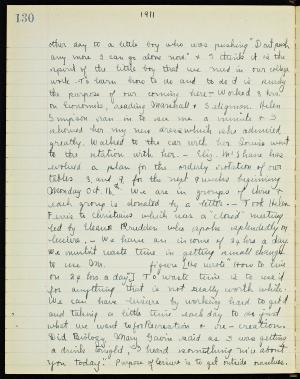 130
1911
other day to a little boy who was pushing "Don't push
any more I can go alone now" & I think it is the
spirit of the little boy that we need in our college
work - To learn how to do and to do it is surely
the purpose of our coming here - Worked 3 hrs.
on Economics, reading Marshall & Seligman. Helen
Simpson ran in to see me a minute & I
showed her my new dress which she admired
greatly. Walked to the car with her. Louise went
to the station with her. - Eliz. McShane has
evolved a plan for the orderly rotation of our
tables 3 and 4 for the next months beginning
Monday Oct. 16th. We are in groups of three &
each group is donated by a letter - Took Helen
Ferris to Christians which was a "closed" meeting
led by Eleanor who spoke splendidly on
leisure. - We have an income of 24 hrs a day
We mustn't waste time in getting small change
to use Mr. [He wrote "How to live
on 24 hrs a day] To waste time is to use it
for anything that is not really worth while.
We can have leisure by working hard to get it
and taking a little time each day to do just
what we want to for Recreation & Re-creation.
Did Biology. Mary Gavin said as I was getting
a drink tonight, "I heard something nice about
you today." Purpose of leisure is to get outside ourselves.